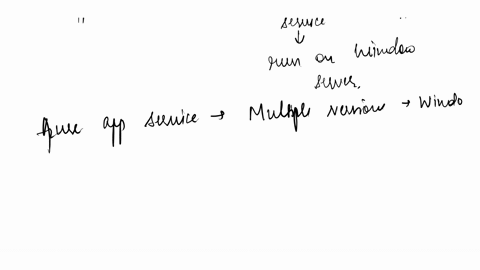 service
↓
run on Window
server.
Azure app service → Multiple versions → Windo